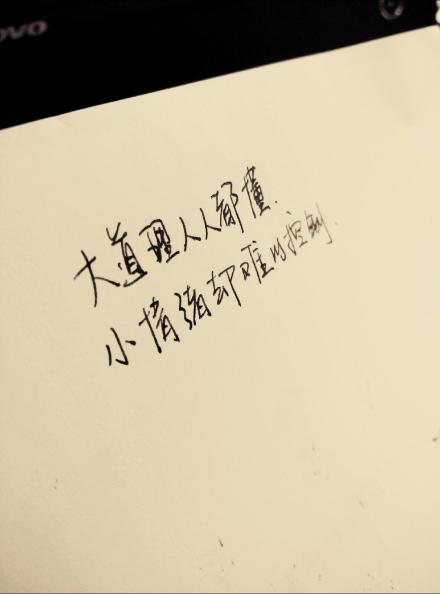 ovo
大道理人人都懂.
小情绪却难以控制.